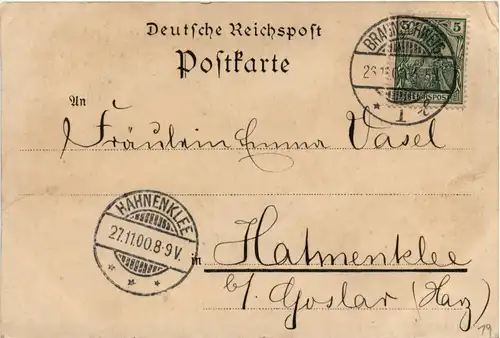 Deutsche Reichspost
Postkarte
5
BRAUNSCHWEIG
An
Fräulein Emma Vasel
HAHNENKLEE
27.11.00.8-9V.
in Hahnenklee
b/ Goslar (Harz)